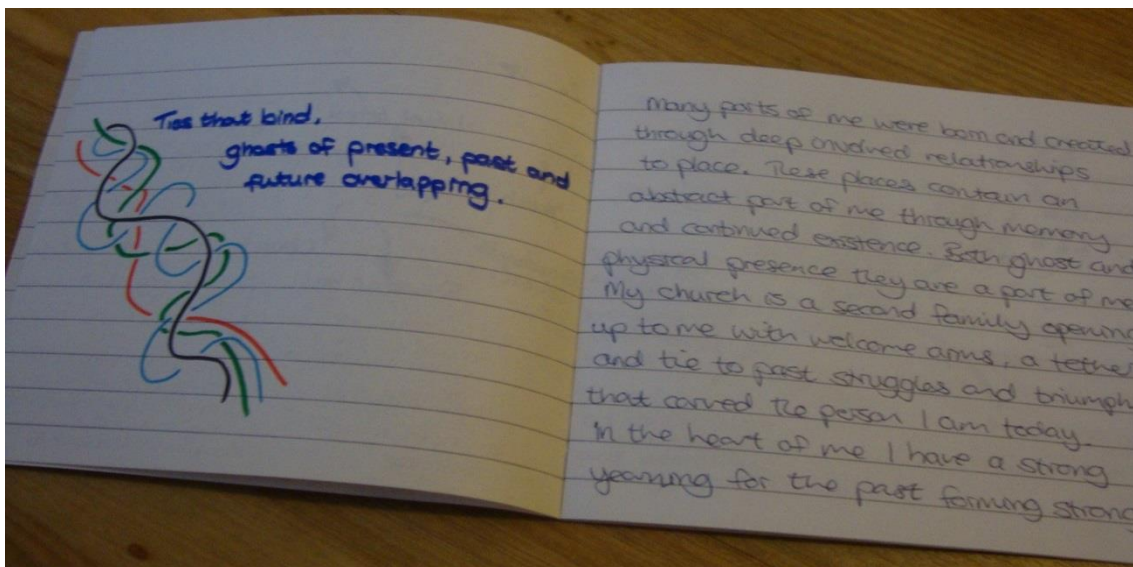 Ties that bind,
ghosts of present, past and
future overlapping.
Many parts of me were born and created
through deep involved relationships
to place. These places contain an
abstract part of me through memory
and continued existence. Both ghost and
physical presence they are a part of me
My church is a second family opening
up to me with welcome arms, a tether
and tie to past struggles and triumph
that carved the person I am today.
In the heart of me I have a strong
yearning for the past forming strong